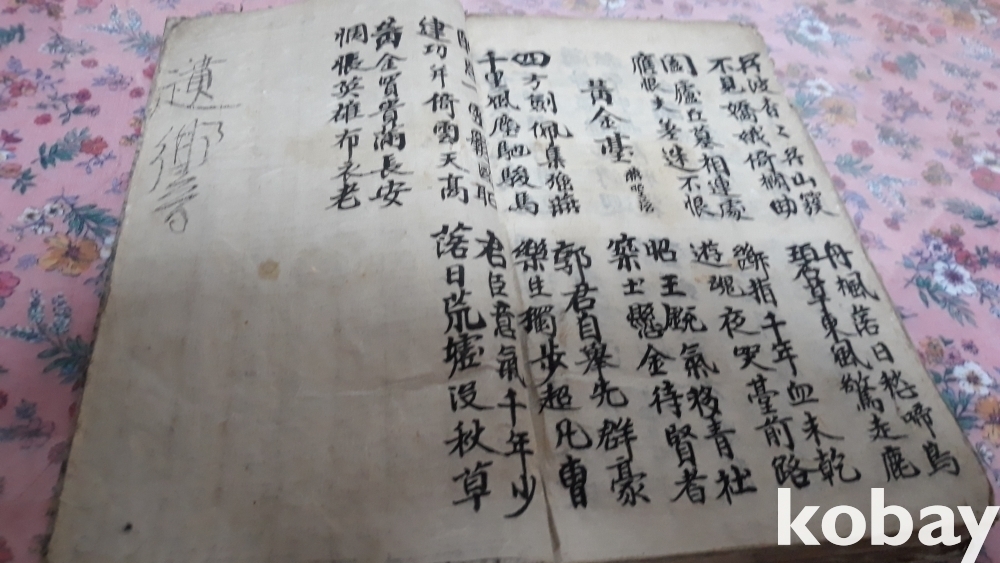 吳波杳杳吳山 丹楓落日愁啼鳥
不見嬌娥倚 碧草東風驚走鹿
闔廬丘墓相連處 斷指千年血未乾
應恨夫差迷不恨 遊魂夜哭臺前路
黃金臺 昭王 氣移青社
四方劍佩集 燕 築土懸金待賢者
千里風塵馳駿馬 郭君自擧先群豪
樂生獨步超凡曹
建功 倚雲天高 君臣意氣千年少
黃金買貴滿長安 落日荒墟沒秋草
惆悵英雄布衣老
kobay